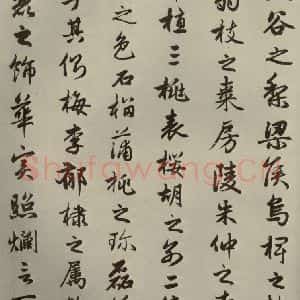 谷之梨梁侯烏椑之
弱枝之棗房陵朱仲之
植三桃表櫻胡之別二
之色石榴蒲桃之珍磊
其側梅李郁棣之屬
之飾華實照爛言
Shufawang.Cn